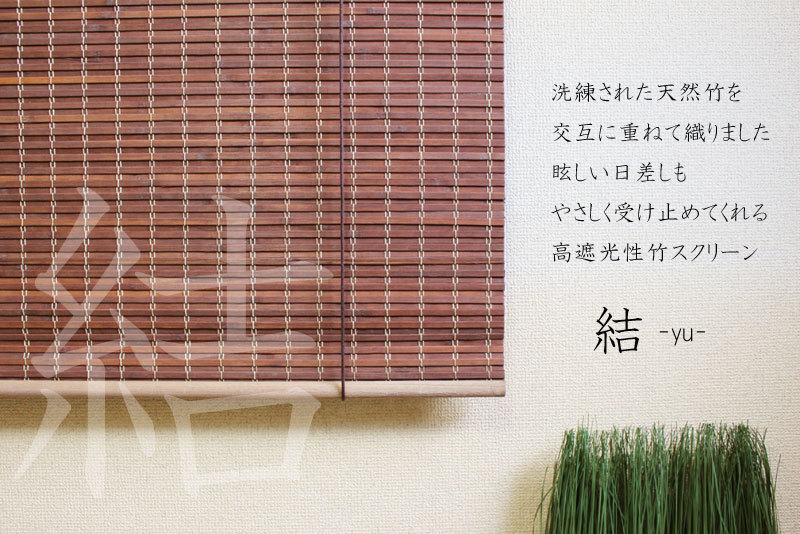 洗練された天然竹を
交互に重ねて織りました
眩しい日差しも
やさしく受け止めてくれる
高遮光性竹スクリーン
結 -yu-
結